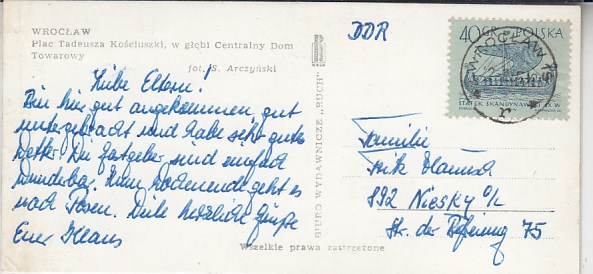 WROCŁAW
Plac Tadeusza Kościuszki, w głębi Centralny Dom
Towarowy
fot. S. Arczyński
Liebe Eltern!
Bin hier gut angekommen, gut
untergebracht und habe sehr gutes
Wetter. Die Gastgeber sind einfach
wunderbar. Zum Wochenende geht es
nach Posen. Viele herzliche Grüße
Euer Klaus
BIURO WYDAWNICZE „RUCH”
Wszelkie prawa zastrzeżone
DDR
40 GR POLSKA
WROCŁAW
Familie
892 Niesky O/L
Str. der Befreiung 75